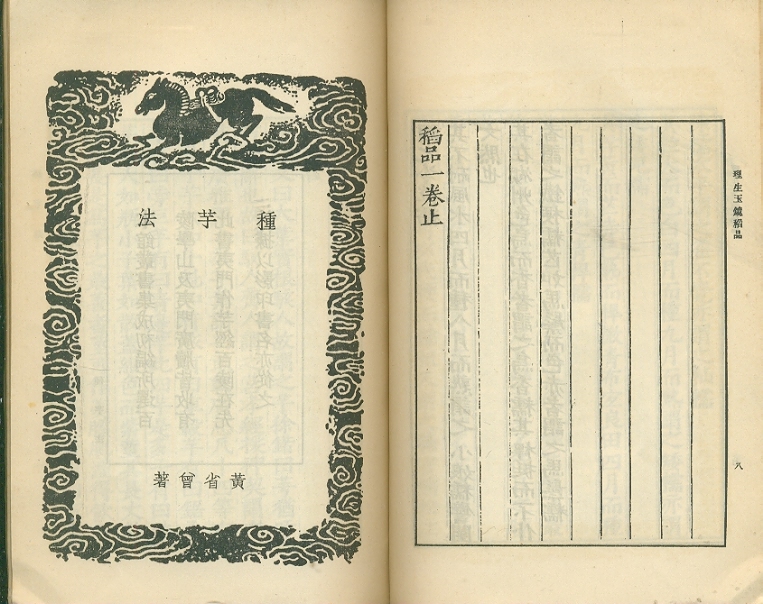 理生玉鏡稻品
八
稻品一卷止
種芋法
黃省曾著